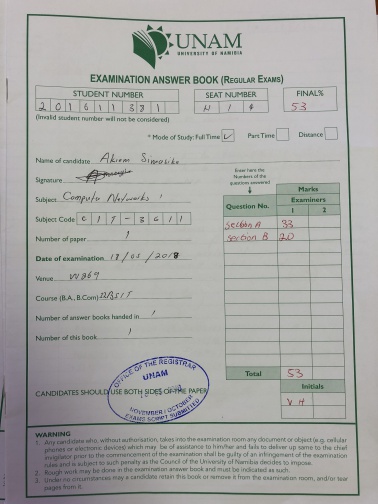 UNAM
UNIVERSITY OF NAMIBIA
EXAMINATION ANSWER BOOK (REGULAR EXAMS)
STUDENT NUMBER SEAT NUMBER FINAL%
201611381 53
(Invalid student number will not be considered)
* Mode of Study: Full Time ✓ Part Time Distance
Name of candidate
Signature
Subject Computer Networks
Subject Code CIT-3611
Number of paper 1
Date of examination 18/05/2018
Venue
Course (B.A., B.Com)
Number of answer books handed in 1
Number of this book 1
Enter here the Numbers of the questions answered
Marks
Question No. Examiners
1 2
section A 33
section B 20
Total 53
Initials
OFFICE OF THE REGISTRAR
UNAM
NOVEMBER / OCTOBER
EXAMS SCRIPT SUBMITTED
CANDIDATES SHOULD USE BOTH SIDES OF THE PAPER
WARNING
1. Any candidate who, without authorisation, takes into the examination room any document or object (e.g. cellular
phones or electronic devices) which may be of assistance to him/her and fails to deliver up same to the chief
invigilator prior to the commencement of the examination shall be guilty of an infringement of the examination
rules and is subject to such penalty as the Council of the University of Namibia decides to impose.
2. Rough work may be done in the examination answer book and must be indicated as such.
3. Under no circumstances may a candidate retain this book or remove it from the examination room, and/or tear
pages from it.